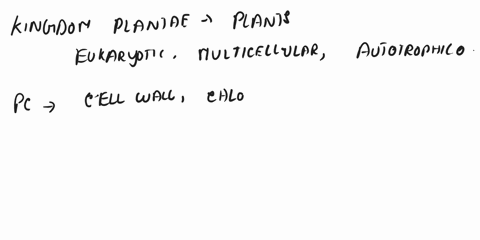 KINGDOM PLANTAE → PLANTS
EUKARYOTIC. MULTICELLULAR, AUTOTROPHIC.
PC → CELL WALL, CHLO